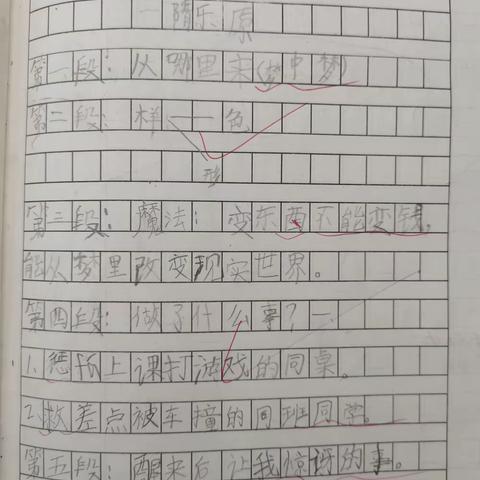 第一段：从哪里来(梦中梦)
第二段：样——色
形
第三段：魔法：变东西不能变钱，
能从梦里改变现实世界。
第四段：做了什么事？一
1.惩上课打游戏的同桌。
2.救差点被车撞的同班同学。
第五段：醒来后让我惊讶的事。